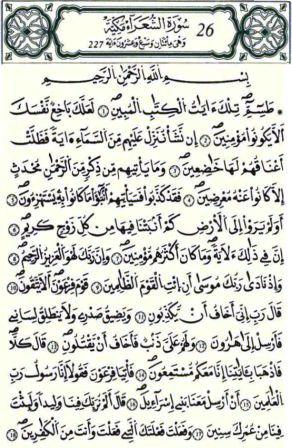 سُورَةُ الشُّعَرَاءِ مَكِّيَّة 26
وَهِيَ مِائَتَانِ وَسَبْعٌ وَعِشْرُونَ ءَايَة 227
بِسْمِ اللَّهِ الرَّحْمَٰنِ الرَّحِيمِ
طَسِٓمِّٓ تِلْكَ ءَايَٰتُ الْكِتَٰبِ الْمُبِينِ ١ لَعَلَّكَ بَٰخِعٌ نَّفْسَكَ
أَلَّا يَكُونُوا مُومِنِينَ ٢ إِن نَّشَأْ نُنَزِّلْ عَلَيْهِم مِّنَ السَّمَآءِ ءَايَةً فَظَلَّتْ
أَعْنَٰقُهُمْ لَهَا خَٰضِعِينَ ٣ وَمَا يَاتِيهِم مِّن ذِكْرٍ مِّنَ الرَّحْمَٰنِ مُحْدَثٍ
اِلَّا كَانُوا عَنْهُ مُعْرِضِينَ ٤ فَقَدْ كَذَّبُوا فَسَيَاتِيهِمُ أَنۢبَٰٓؤُا مَا كَانُوا بِهِ يَسْتَهْزِءُونَ ٥
أَوَلَمْ يَرَوِا اِلَى الْأَرْضِ كَمَ أَنۢبَتْنَا فِيهَا مِن كُلِّ زَوْجٍ كَرِيمٍ ٦
إِنَّ فِي ذَٰلِكَ لَأٓيَةً وَمَا كَانَ أَكْثَرُهُم مُّومِنِينَ ٧ وَإِنَّ رَبَّكَ لَهُوَ الْعَزِيزُ الرَّحِيمُ ٨
وَإِذْ نَادَىٰ رَبُّكَ مُوسَىٰ أَنِ اِيتِ الْقَوْمَ الظَّٰلِمِينَ ٩ قَوْمَ فِرْعَوْنَ أَلَا يَتَّقُونَ ١٠
قَالَ رَبِّ إِنِّيَ أَخَافُ أَن يُّكَذِّبُونِ ١١ وَيَضِيقُ صَدْرِي وَلَا يَنطَلِقُ لِسَانِي
فَأَرْسِلِ اِلَىٰ هَٰرُونَ ١٢ وَلَهُمْ عَلَيَّ ذَنۢبٌ فَأَخَافُ أَن يَّقْتُلُونِ ١٣ قَالَ كَلَّا
فَاذْهَبَا بِـَٔايَٰتِنَآ إِنَّا مَعَكُم مُّسْتَمِعُونَ ١٤ فَاتِيَا فِرْعَوْنَ فَقُولَآ إِنَّا رَسُولُ رَبِّ
الْعَٰلَمِينَ ١٥ أَنَ اَرْسِلْ مَعَنَا بَنِي إِسْرَآءِيلَ ١٦ قَالَ أَلَمْ نُرَبِّكَ فِينَا وَلِيدًا وَلَبِثْتَ
فِينَا مِنْ عُمُرِكَ سِنِينَ ١٧ وَفَعَلْتَ فَعْلَتَكَ الَّتِي فَعَلْتَ وَأَنتَ مِنَ الْكَٰفِرِينَ ١٨